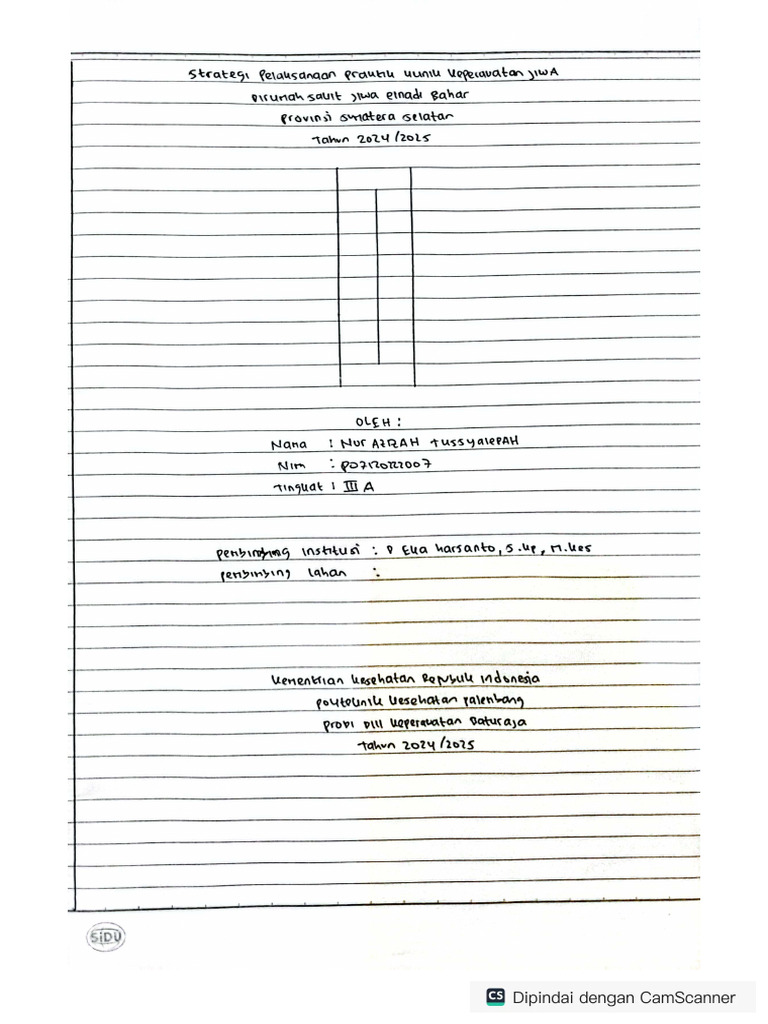 Strategi Pelaksanaan Praktik klinik keperawatan jiwa
Dirumah sakit jiwa Ernadi Bahar
Provinsi Sumatera Selatan
Tahun 2024/2025
OLEH :
Nama : Nur AZIZAH Tussyalepah
Nim : P07120122007
Tingkat : III A
Pembimbing Institusi : D Eka harsanto, S.kp, M.kes
Pembimbing Lahan :
Kementrian Kesehatan Republik Indonesia
Politeknik Kesehatan Palembang
Prodi DIII Keperawatan Baturaja
Tahun 2024/2025
SiDU
CS Dipindai dengan CamScanner